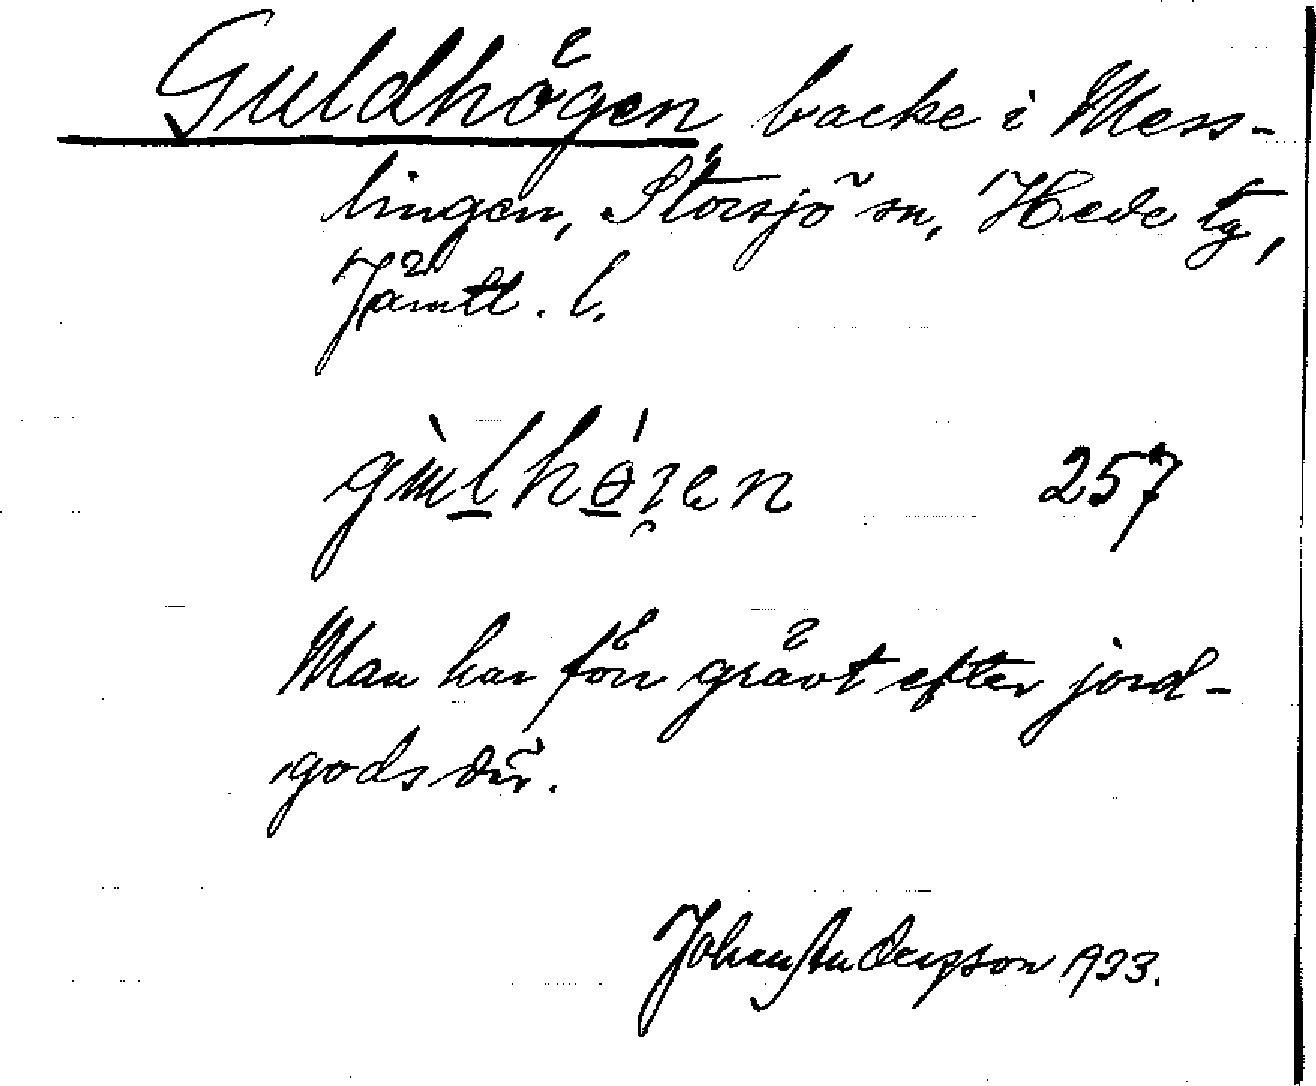 Guldhögen, backe i Mess-
lingen, Storsjö sn, Hede tg,
Jämtl. l.
257
Man har förr grävt efter jord-
gods där.
Johan Andersson 1933.